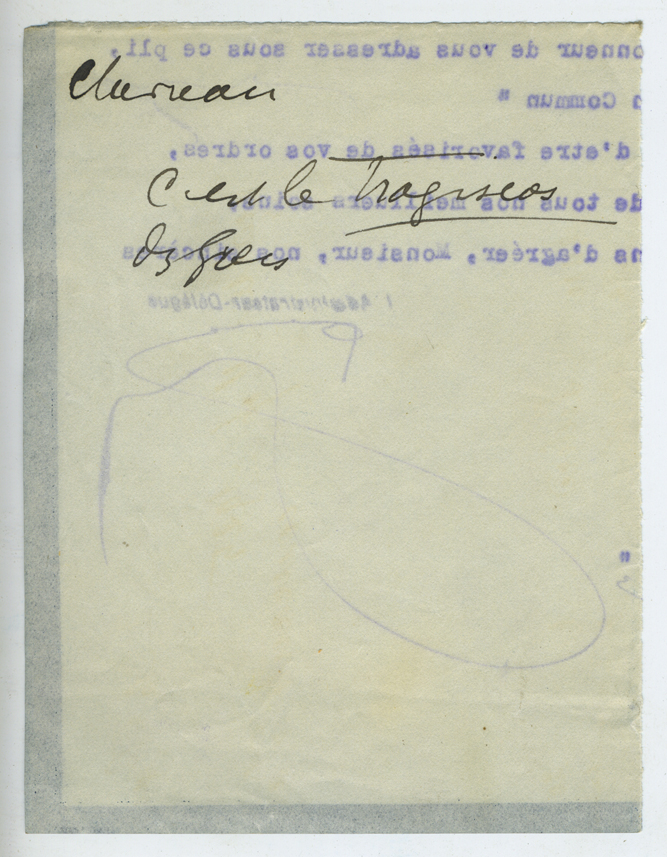 onneur de vous adresser sous ce pli,
n Commun "
d'etre favorisés de vos ordres,
C est le Tragiscos
de tous nos meilleurs soins,
ns d'agréer, Monsieur, nos sincères
des Grecs
L'Administrateur-Délégué
"